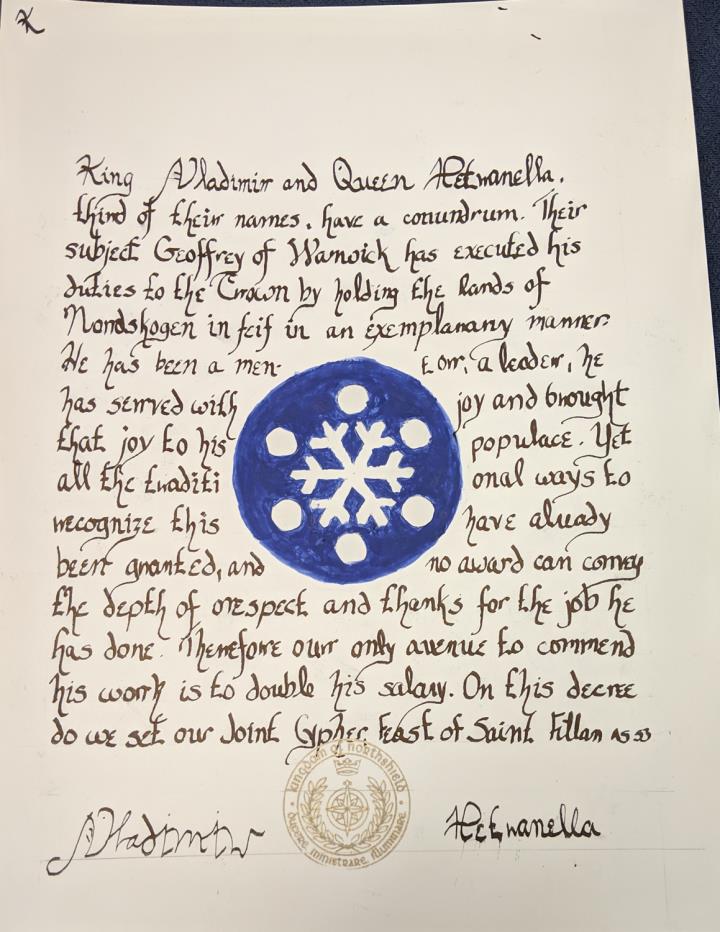 King Vladimir and Queen Petranella,
third of their names, have a conundrum. Their
subject Geoffrey of Warwick has executed his
duties to the Crown by holding the lands of
Nordskogen in feif in an exemplarary manner.
He has been a men- tor, a leader, he
has served with joy and brought
that joy to his populace. Yet
all the traditi onal ways to
recognize this have already
been granted, and no award can convey
the depth of respect and thanks for the job he
has done. Therefore our only avenue to commend
his work is to double his salary. On this decree
do we set our Joint Cypher Feast of Saint Fillan AS 53
Kingdom of Northshield
ministrare illuminare
Vladimir Petranella